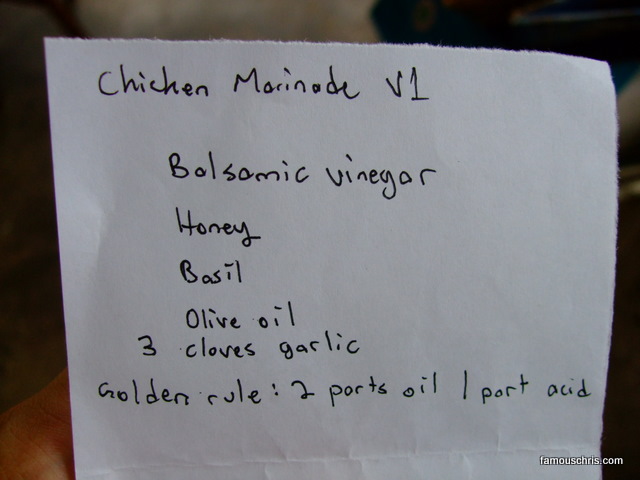 Chicken Marinade V1
Balsamic vinegar
Honey
Basil
Olive oil
3 cloves garlic
Golden rule: 2 parts oil 1 part acid
famouschris.com